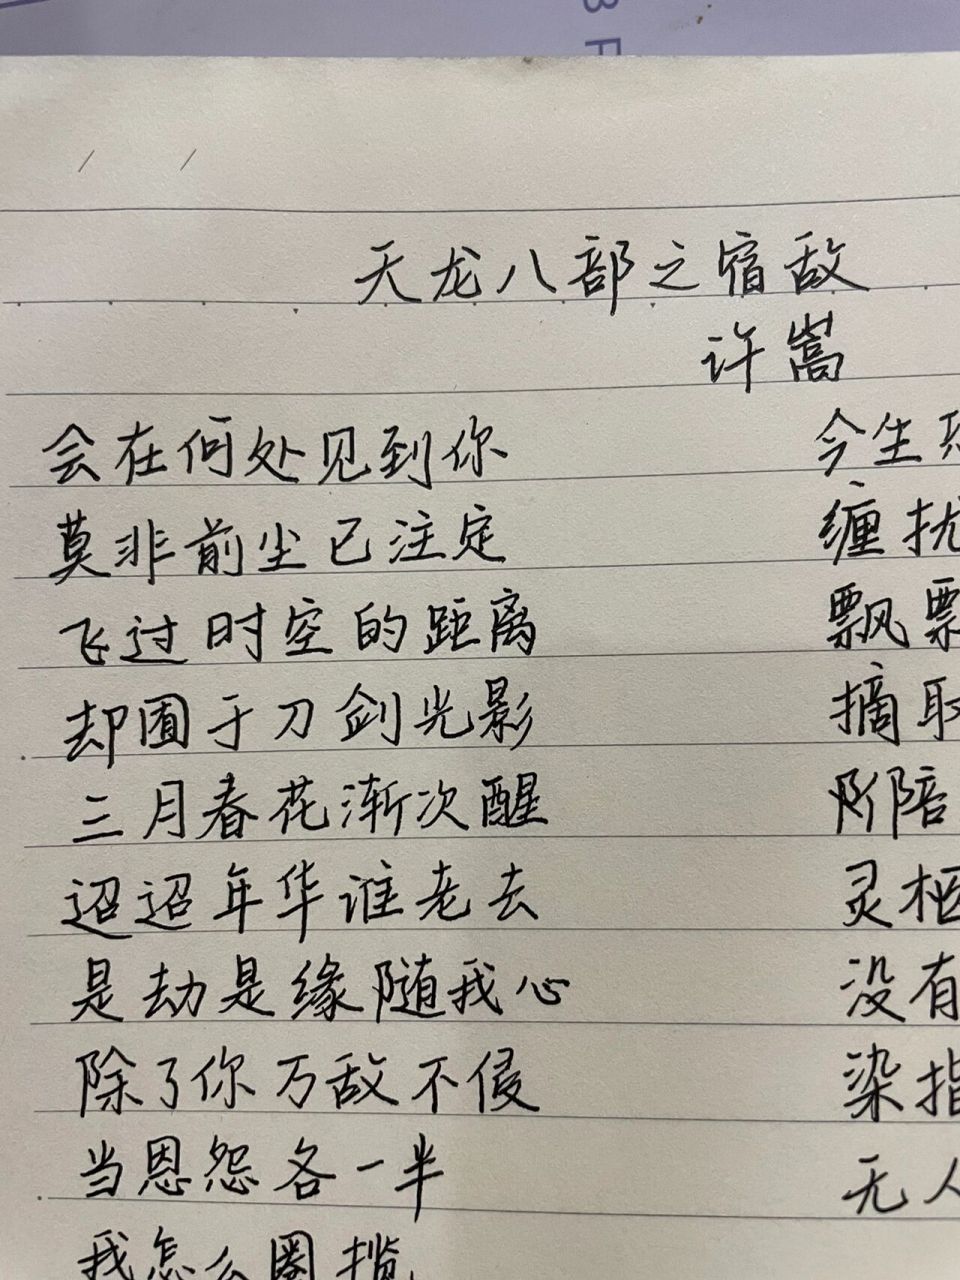 B F
天龙八部之宿敌
许嵩
会在何处见到你
莫非前尘已注定
飞过时空的距离
却囿于刀剑光影
三月春花渐次醒
迢迢年华谁老去
是劫是缘随我心
除了你万敌不侵
当恩怨各一半
我怎么圈揽
今生
缠扰
飘飘
摘取
阶陪
灵柩
没有
染指
无人